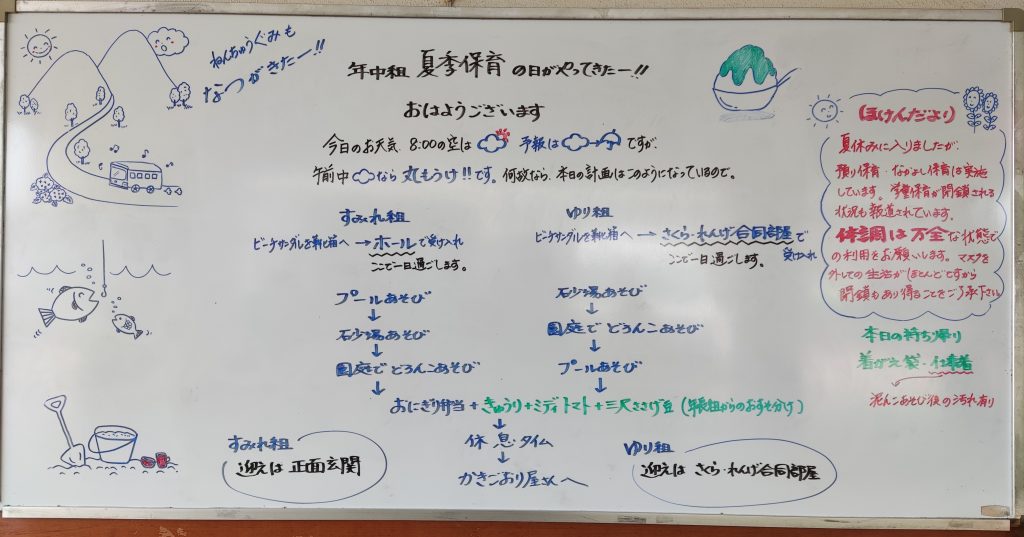 ねんちゅうぐみも
なつがきたー!!
年中組 夏季保育 の日がやってきたー!!
おはようございます
今日のお天気 8:00の空は 予報は → ですが
午前中 なら 丸もうけ!!です。何故なら、本日の計画はこのようになっているので。
すみれ組
ビーチサンダルを靴箱へ → ホールで受け入れ
ここで一日過ごします。
プールあそび
↓
砂場あそび
↓
園庭で どろんこあそび
↓
ゆり組
ビーチサンダルを靴箱へ → さくら・れんげ合同部屋で
受け入れ
ここで一日過ごします。
砂場あそび
↓
園庭で どろんこあそび
↓
プールあそび
↓
おにぎり弁当 + きゅうり + ミディトマト + 三尺ささげ豆 (年長組からのおすそ分け)
↓
休息タイム
↓
かきごおり屋さんへ
すみれ組
迎えは 正面玄関
ゆり組
迎えは さくら・れんげ合同部屋
ほけんだより
夏休みに入りましたが、
預り保育・なかよし保育は実施
しています。学童保育が閉鎖される
状況も報道されています。
体調は万全な状態で
の利用をお願いします。マスクを
外しての生活がほとんどですから
閉鎖もあり得ることをご了承下さい。
本日の持ち帰り
着がえ袋・仕事着
泥んこあそび後の汚れ有り